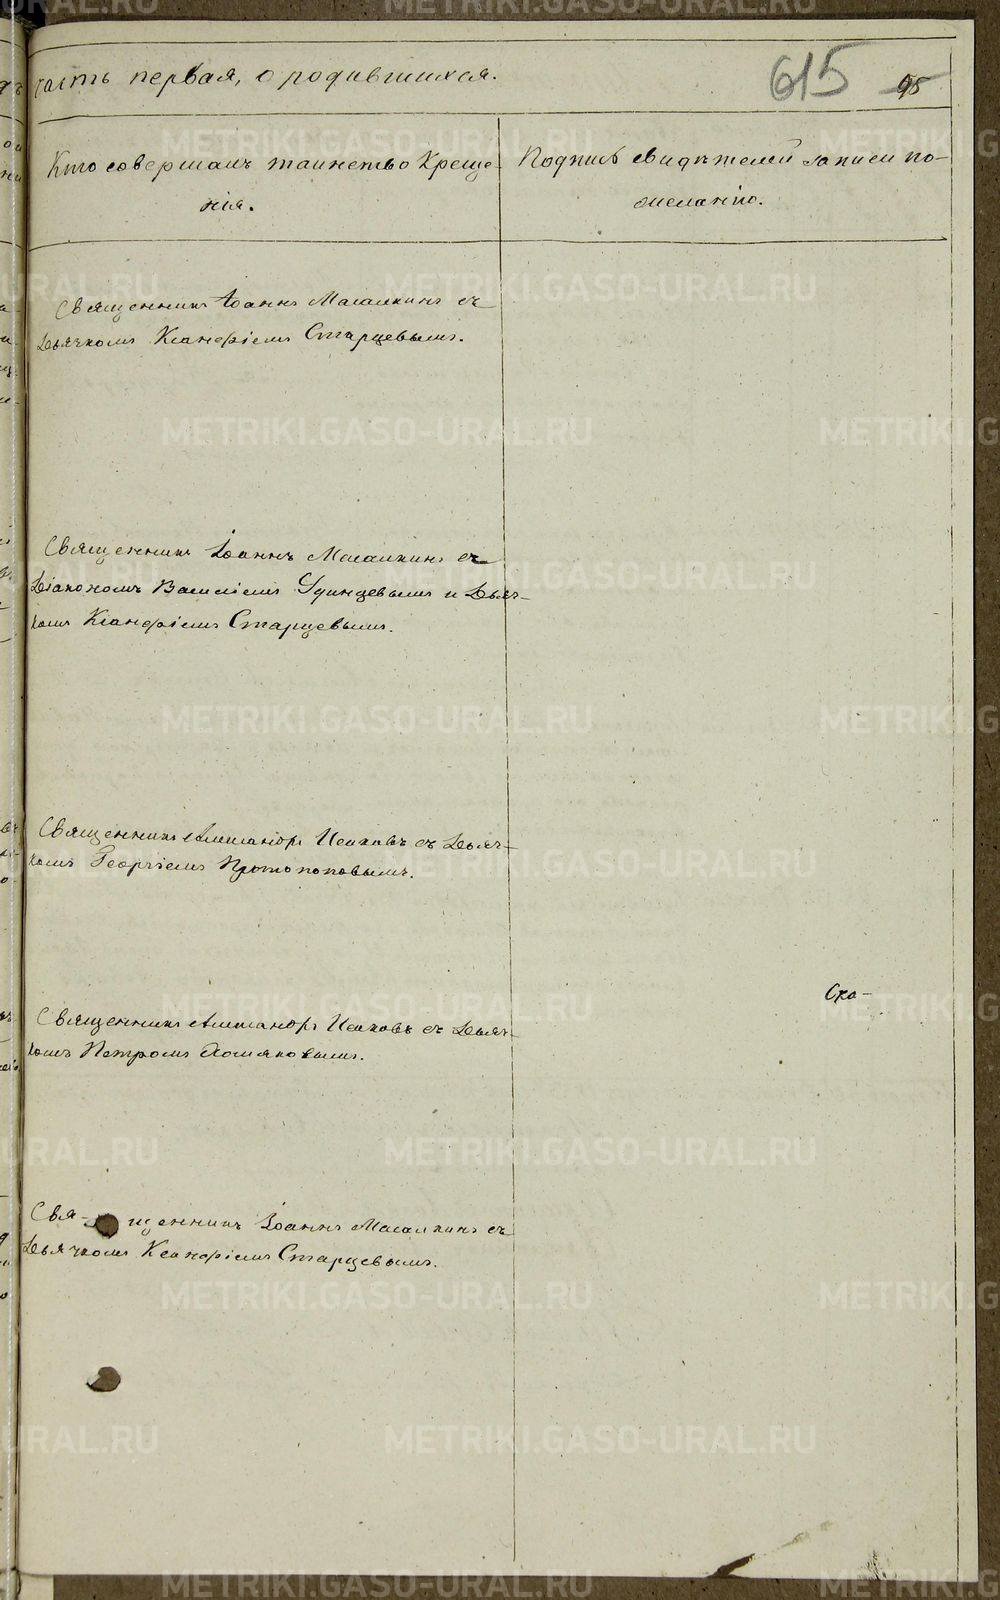 часть первая, о родившихся.
615 95
Кто совершалъ таинство Креще-
нія.
Подпись свидѣтелей записи по-
желанію.
Священникъ Іоаннъ Масалкинъ съ
Дьячкомъ Ксанфіемъ Старцевымъ.
Священникъ Іоаннъ Масалкинъ съ
Діакономъ Василіемъ Удинцевымъ и Дьяч-
комъ Ксанфіемъ Старцевымъ.
Священникъ Александръ Исаковъ съ Дьяч-
комъ Георгіемъ Протопоповымъ.
Ска-
Священникъ Александръ Исаковъ съ Дьяч-
комъ Петромъ Хомяковымъ.
Свя- щенникъ Іоаннъ Масалкинъ съ
Дьячкомъ Ксанфіемъ Старцевымъ.
METRIKI.GASO-URAL.RU